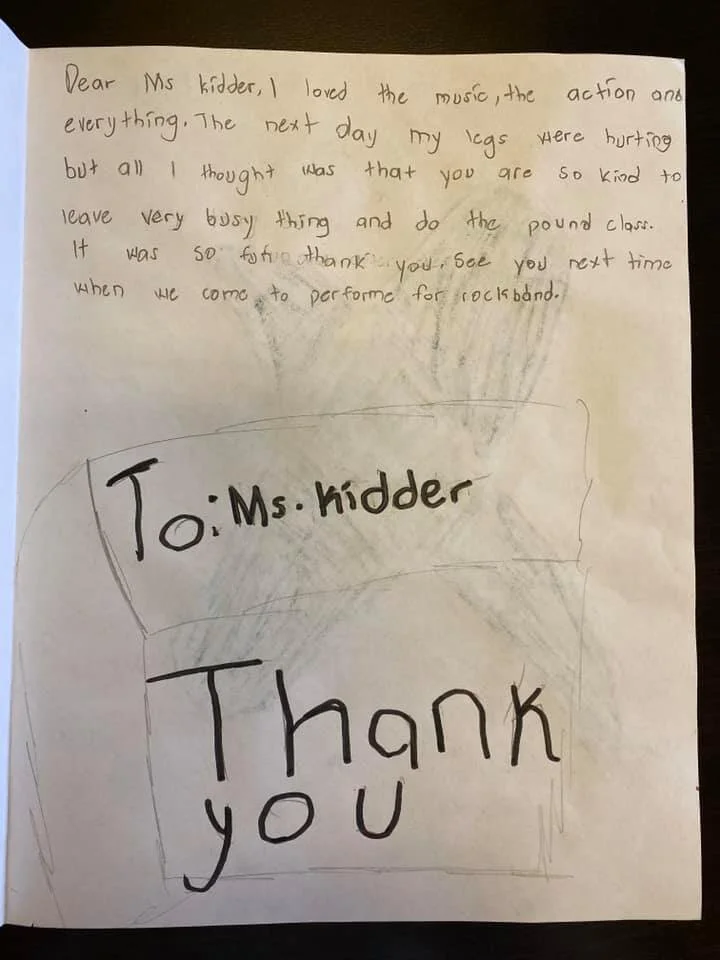 Dear Ms kidder, I loved the music, the action and
everything. The next day my legs were hurting
but all I thought was that you are so kind to
leave very busy thing and do the pound class.
It was so thank you. See you next time
when we come to performe for rockband.
To: Ms. kidder
Thank
you